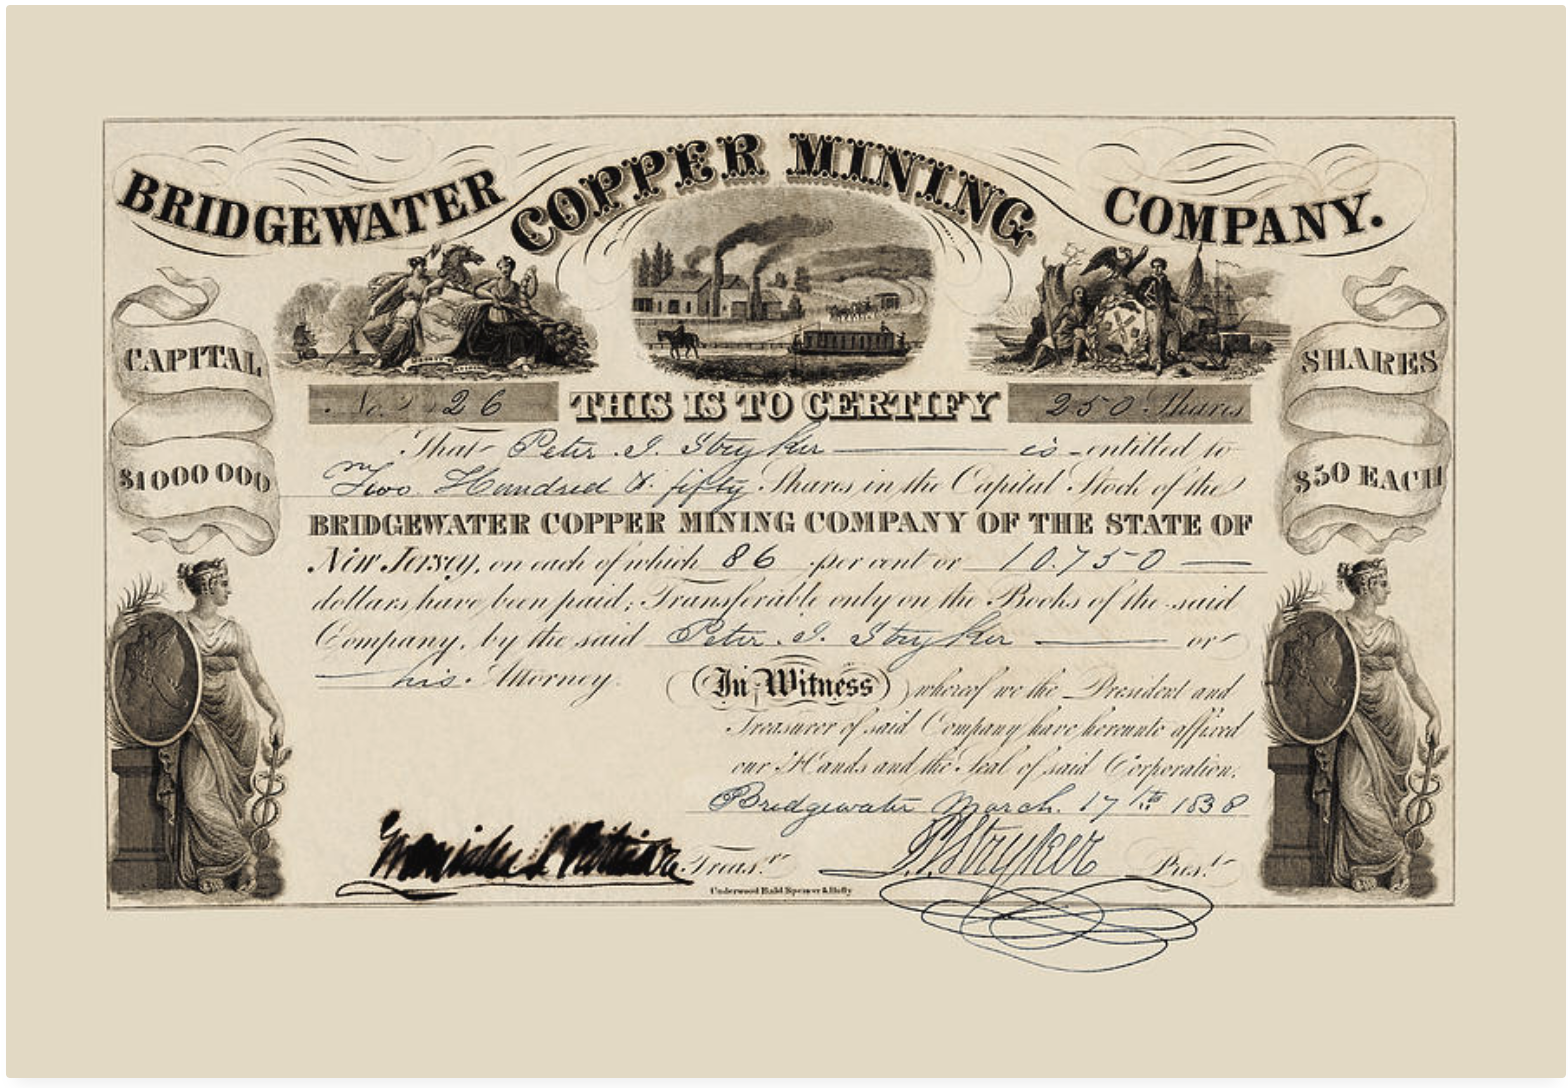 BRIDGEWATER COPPER MINING COMPANY.
CAPITAL
$1000 000
SHARES
$50 EACH
No. 26
THIS IS TO CERTIFY
250 Shares
That Peter I. Stryker is entitled to
Two Hundred & fifty Shares in the Capital Stock of the
BRIDGEWATER COPPER MINING COMPANY OF THE STATE OF
New Jersey, on each of which 86 per cent or 10.750
dollars have been paid; Transferable only on the Books of the said
Company, by the said Peter. I. Stryker or
his Attorney.
In Witness whereof we the President and
Treasurer of said Company have hereunto affixed
our Hands and the Seal of said Corporation.
Bridgewater March. 17th 1838
Treasr.
P. I. Stryker Prest.
Underwood Bald Spencer & Hufty